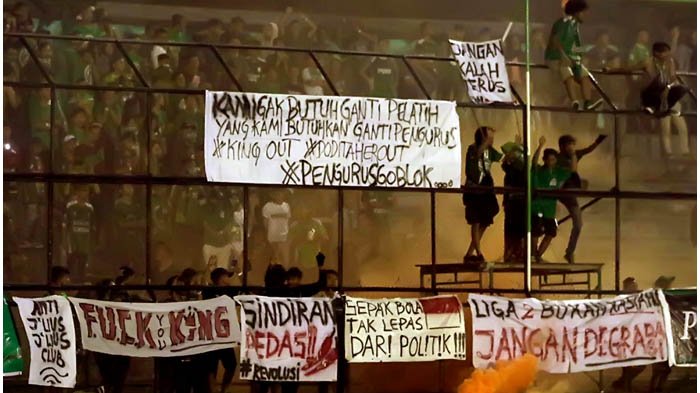 JANGAN
KALAH
TERUS
KAMI GAK BUTUH GANTI PELATIH
YANG KAMI BUTUHKAN GANTI PENGURUS
#KING OUT #DODITAHEROUT
#PENGURUSGOBLOK.....
ANTI
JULUS
JULUS
CLUB
F.U.C.K YOU KING
SINDIRAN
PEDAS!!
#REVOLUSI
SEPAK BOLA
TAK LEPAS
DARI POLITIK!!!
LIGA 2 BUKAN
JANGAN DEGRADA
P